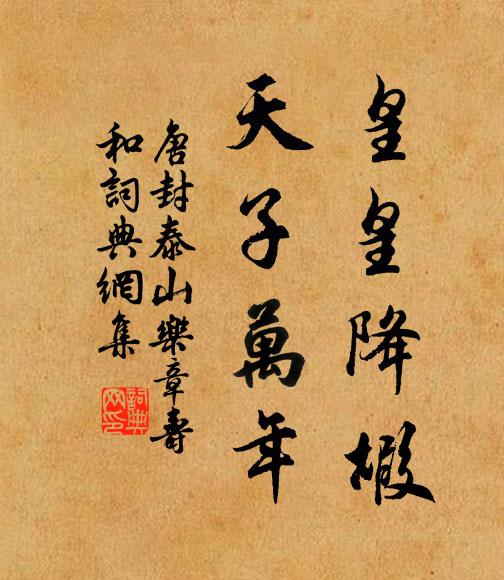 皇皇降嘏
天子萬年
唐封泰山樂章壽
和詞典網集
詞典
网印